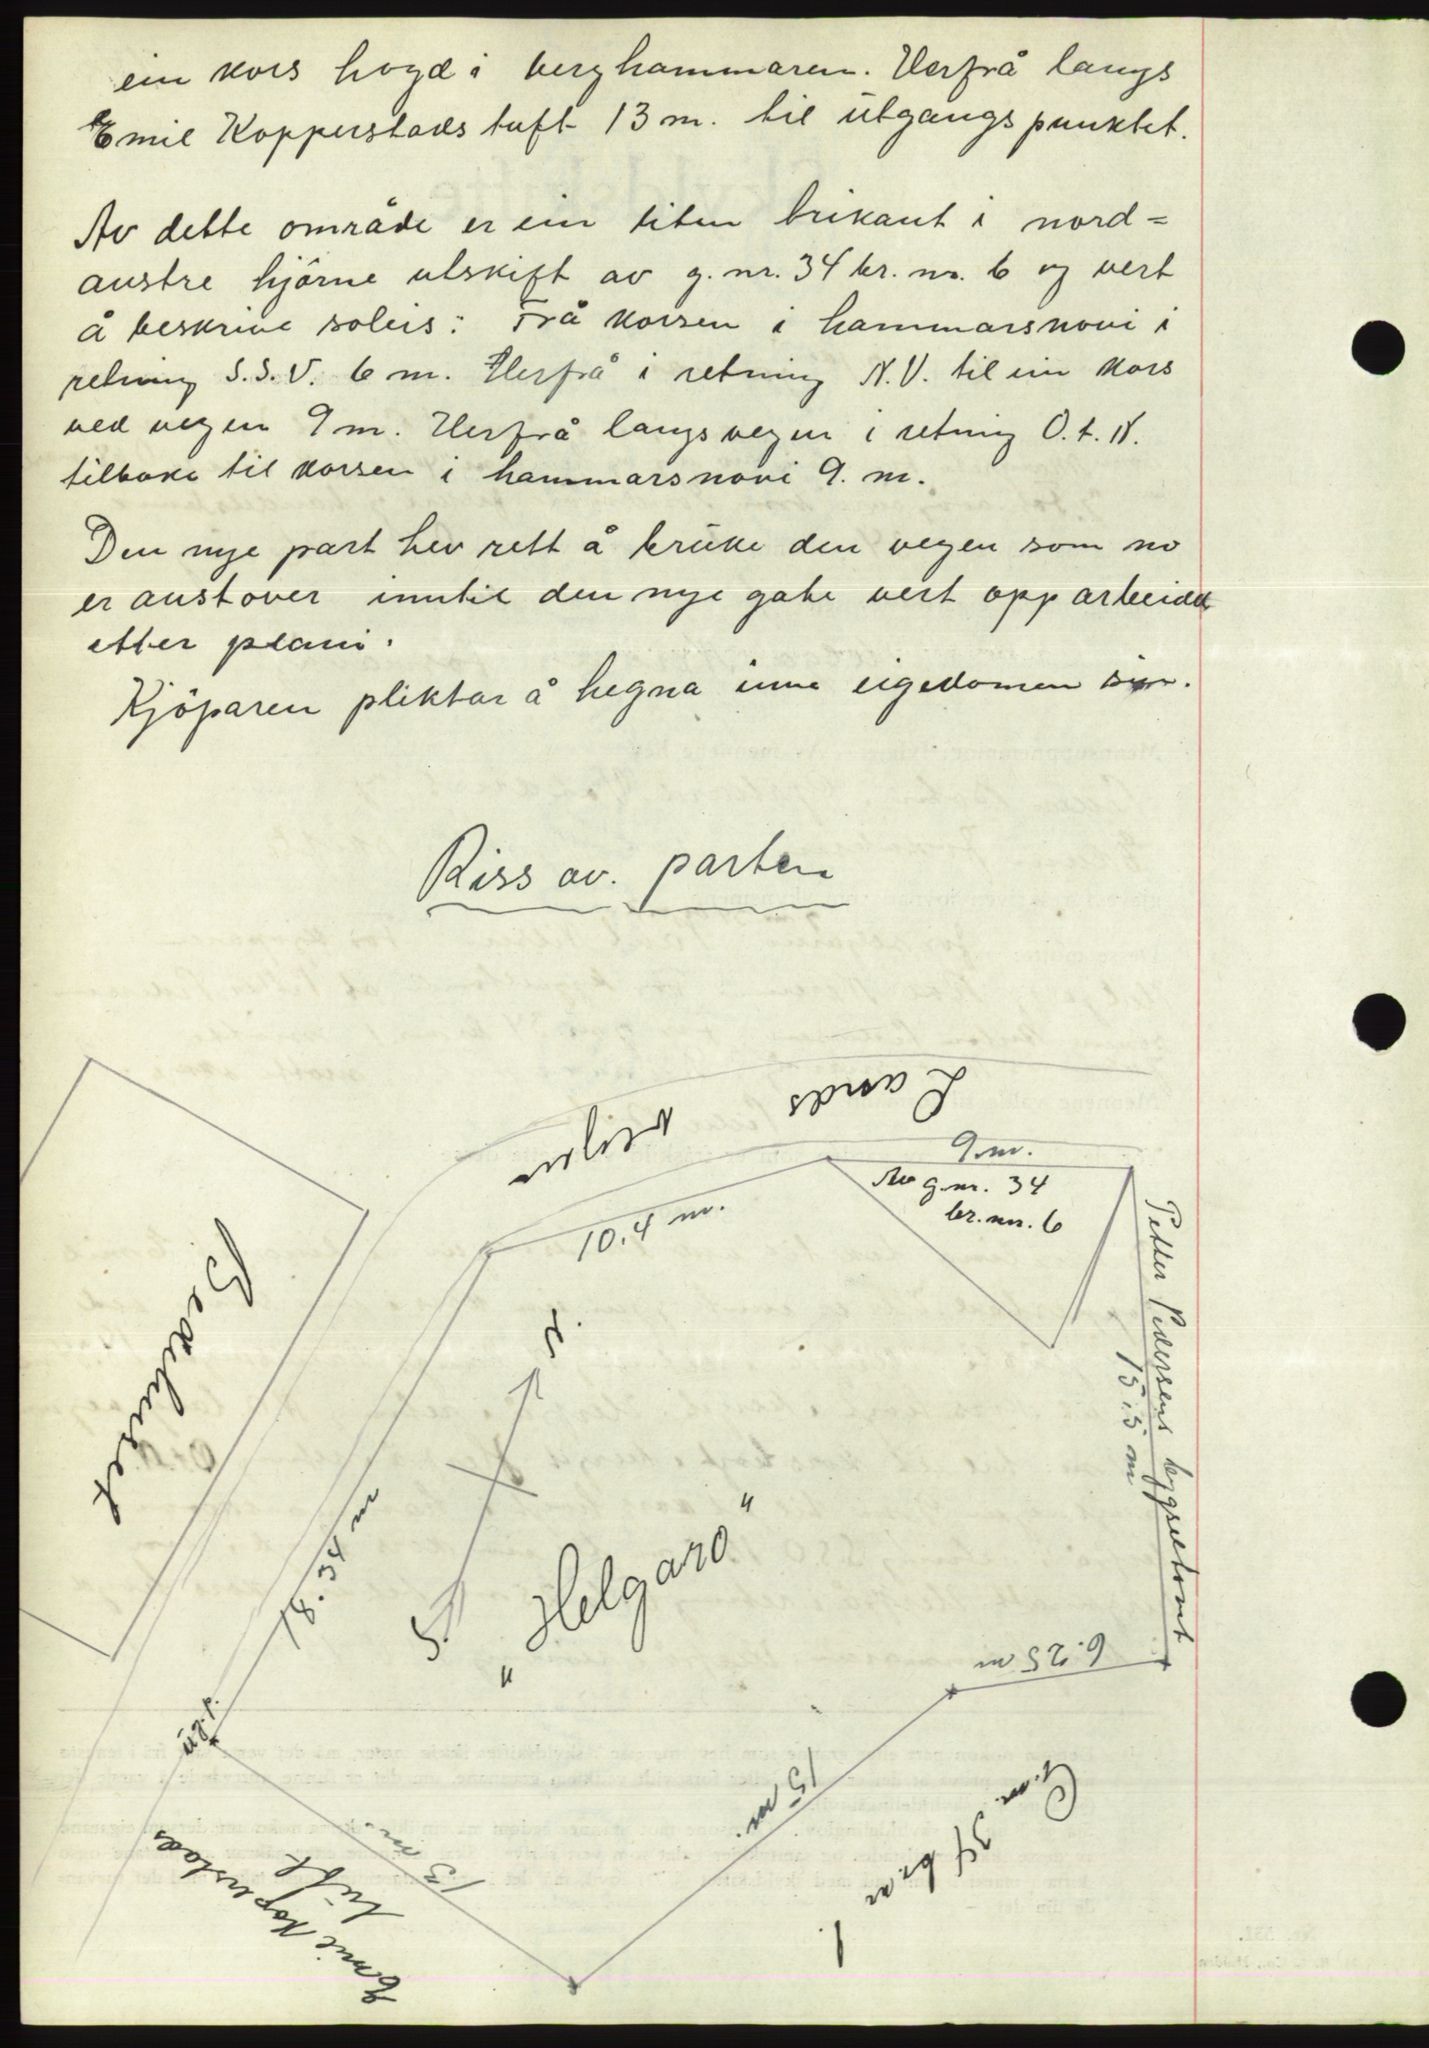 ein kors hogd i berghammaren. Herfrå langs
Emil Kopperstads tuft 13 m. til utgangspunktet.
Av dette område er ein liten trikant i nord=
austre hjörne utskift av g. nr. 34 br. nr. 6 og vert
å beskrive soleis: Frå korsen i hammarsnovi i
retning S.S.V. 6 m. Herfrå i retning N.V. til ein kors
ved vegen 9 m. Herfrå langs vegen i retning O.t.N.
tilbake til korsen i hammarsnovi 9. m.
Den nye part hev rett å bruke den vegen som no
er austover inntil den nye gate vert opparbeidd
etter plani.
Kjöparen pliktar å hegna inne eigedomen sin.
Riss av. parten
Lands vegen
9 m.
Av g. nr. 34
br. nr. 6
10.4 m.
Petter Pedersens bygsletomt
15.5 m
Bedehuset
N.
S.
18.34 m
"Helgaro"
6.25 m
ug.p.
15 m.
13 m.
G. nr. 34 br nr 1
Emil Koperstads
tuft